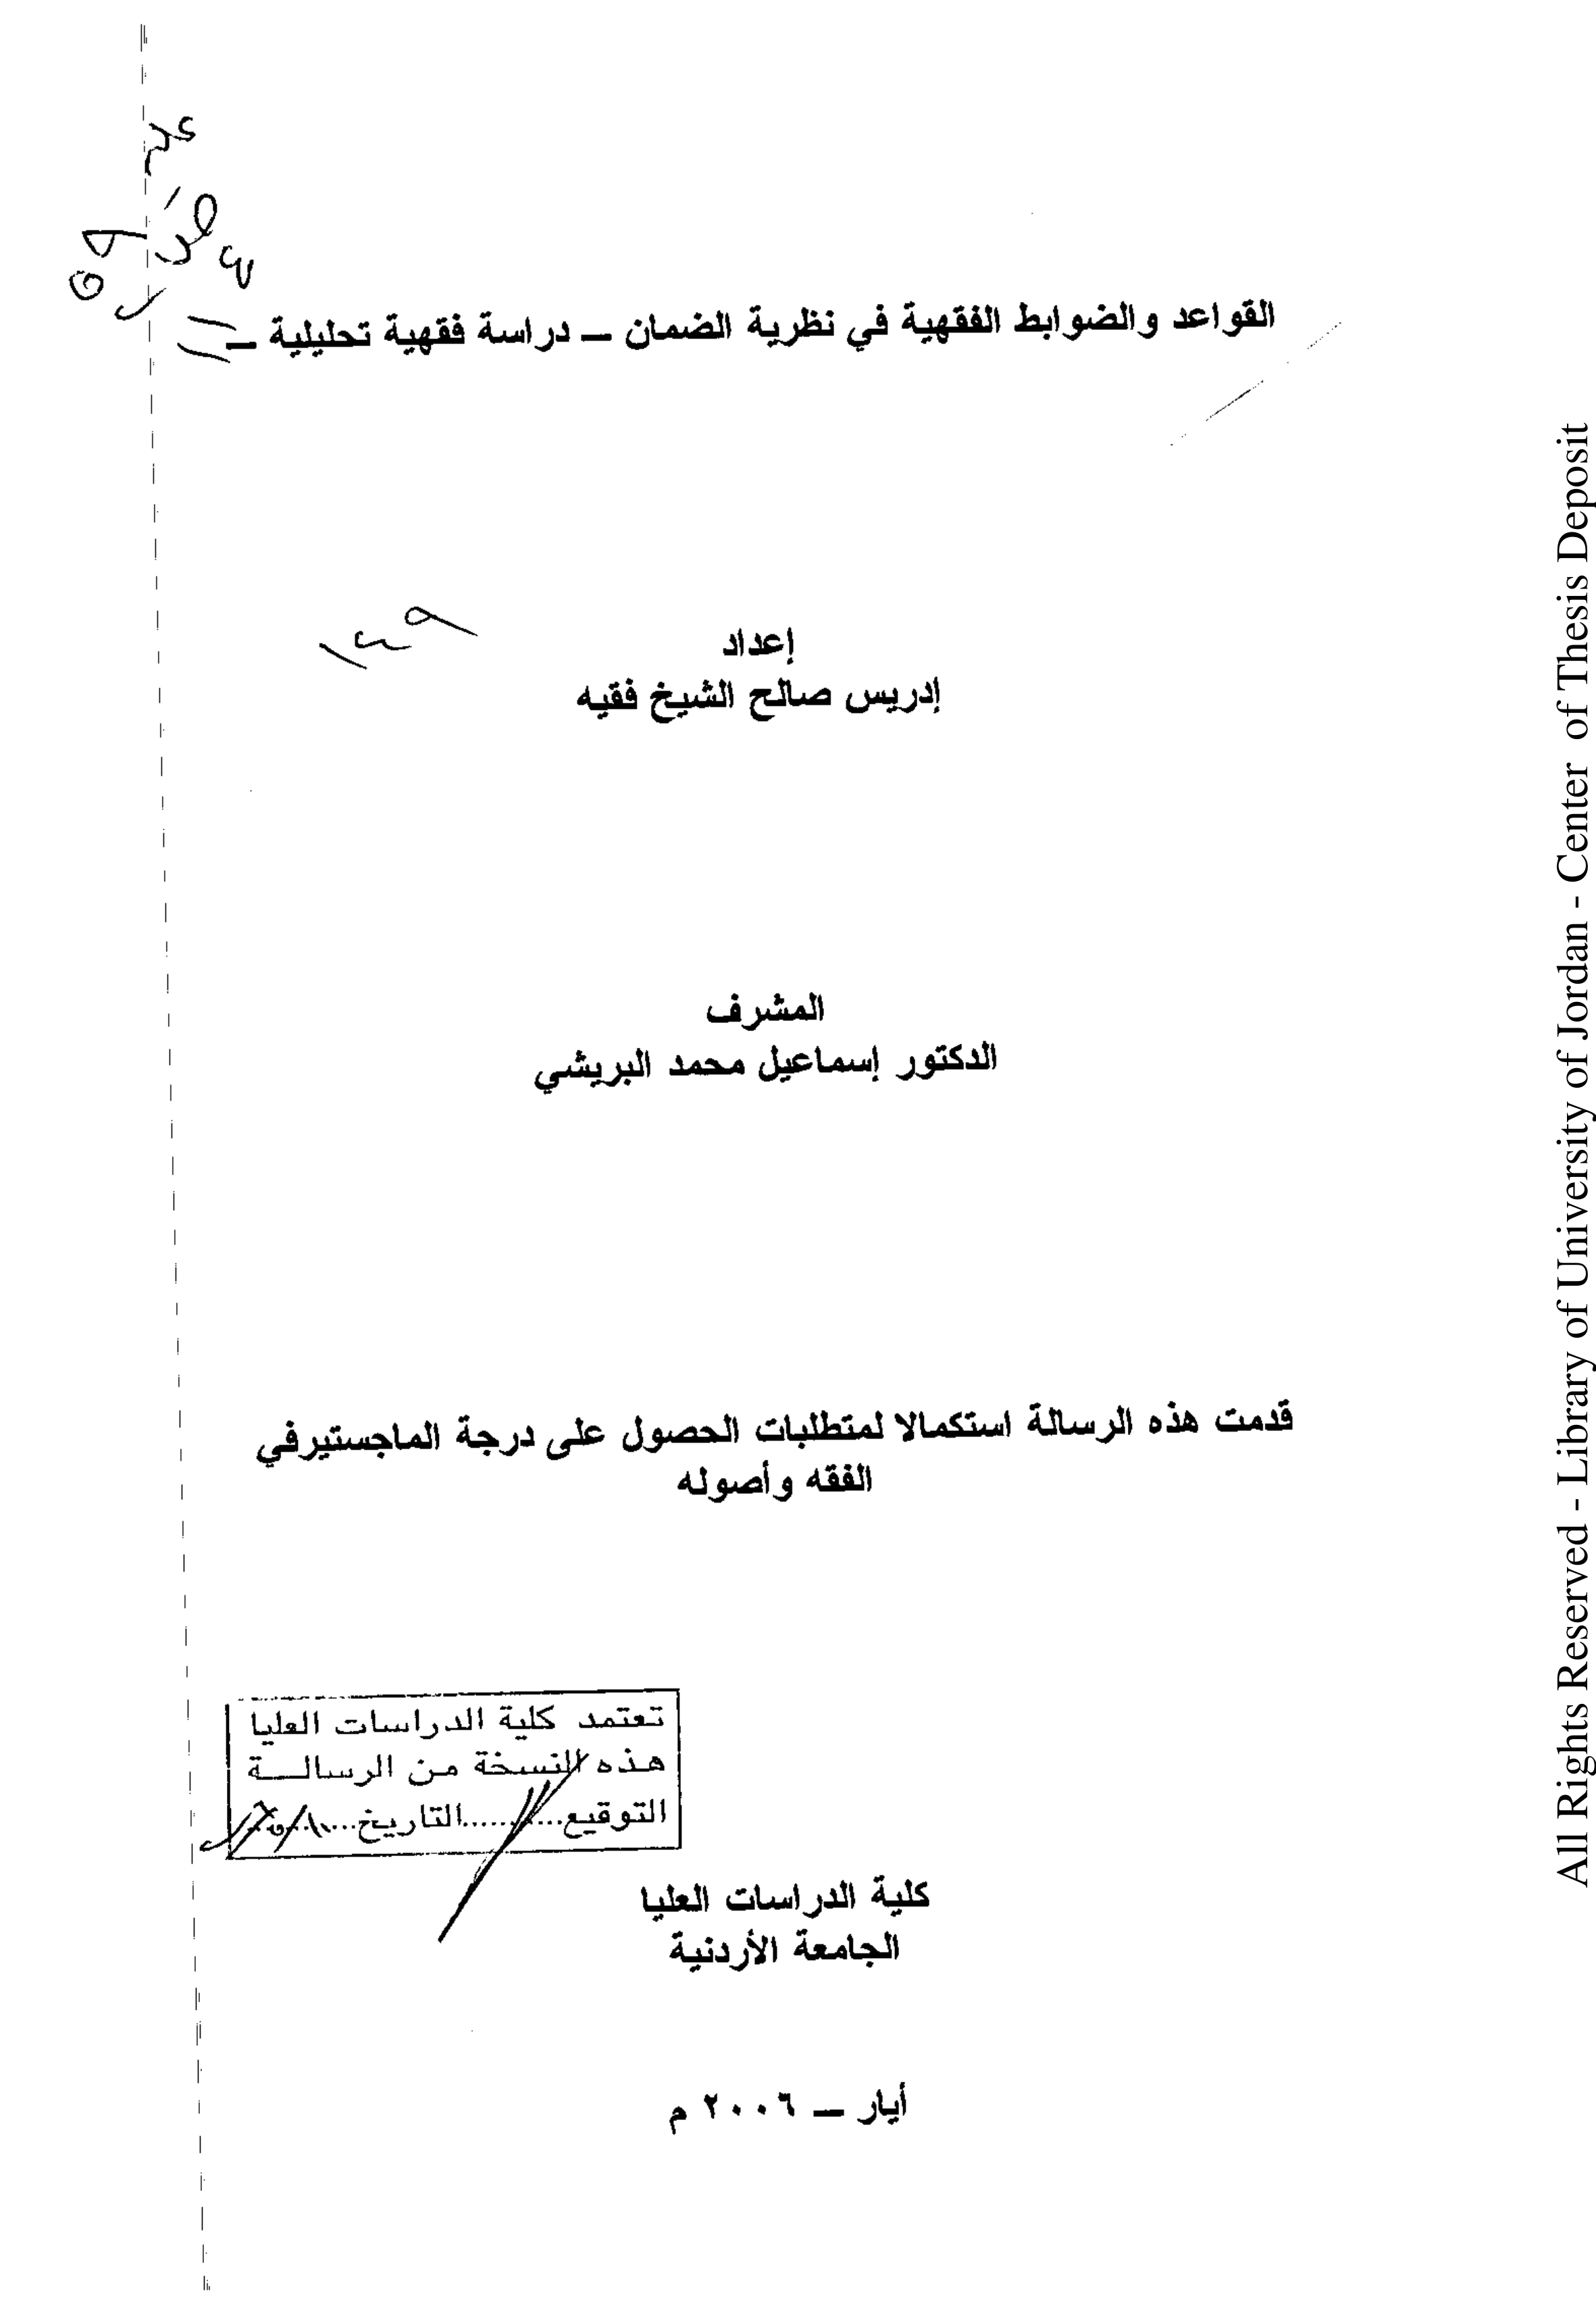 القواعد والضوابط الفقهية في نظرية الضمان – دراسة فقهية تحليلية –
إعداد
إدريس صالح الشيخ فقيه
المشرف
الدكتور إسماعيل محمد البريشي
قدمت هذه الرسالة استكمالا لمتطلبات الحصول على درجة الماجستيرفي
الفقه وأصوله
تعتمد كلية الدراسات العليا
هذه النسخة من الرسالـــة
التوقيع............التاريخ.......
كلية الدراسات العليا
الجامعة الأردنية
أيار – ٢٠٠٦ م
All Rights Reserved - Library of University of Jordan - Center of Thesis Deposit